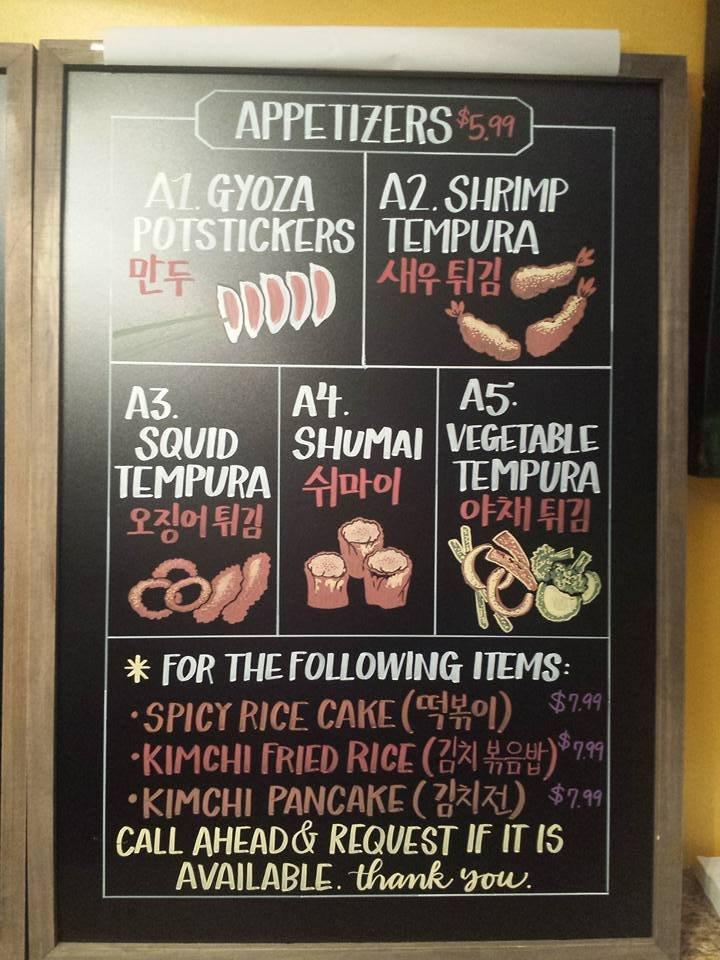 APPETIZERS $5.99
A1. GYOZA
POTSTICKERS
만두
A2. SHRIMP
TEMPURA
새우 튀김
A3.
SQUID
TEMPURA
오징어 튀김
A4.
SHUMAI
쉬마이
A5.
VEGETABLE
TEMPURA
야채 튀김
* FOR THE FOLLOWING ITEMS:
• SPICY RICE CAKE (떡볶이) $7.99
• KIMCHI FRIED RICE (김치 볶음밥) $7.99
• KIMCHI PANCAKE (김치전) $7.99
CALL AHEAD & REQUEST IF IT IS
AVAILABLE. thank you.